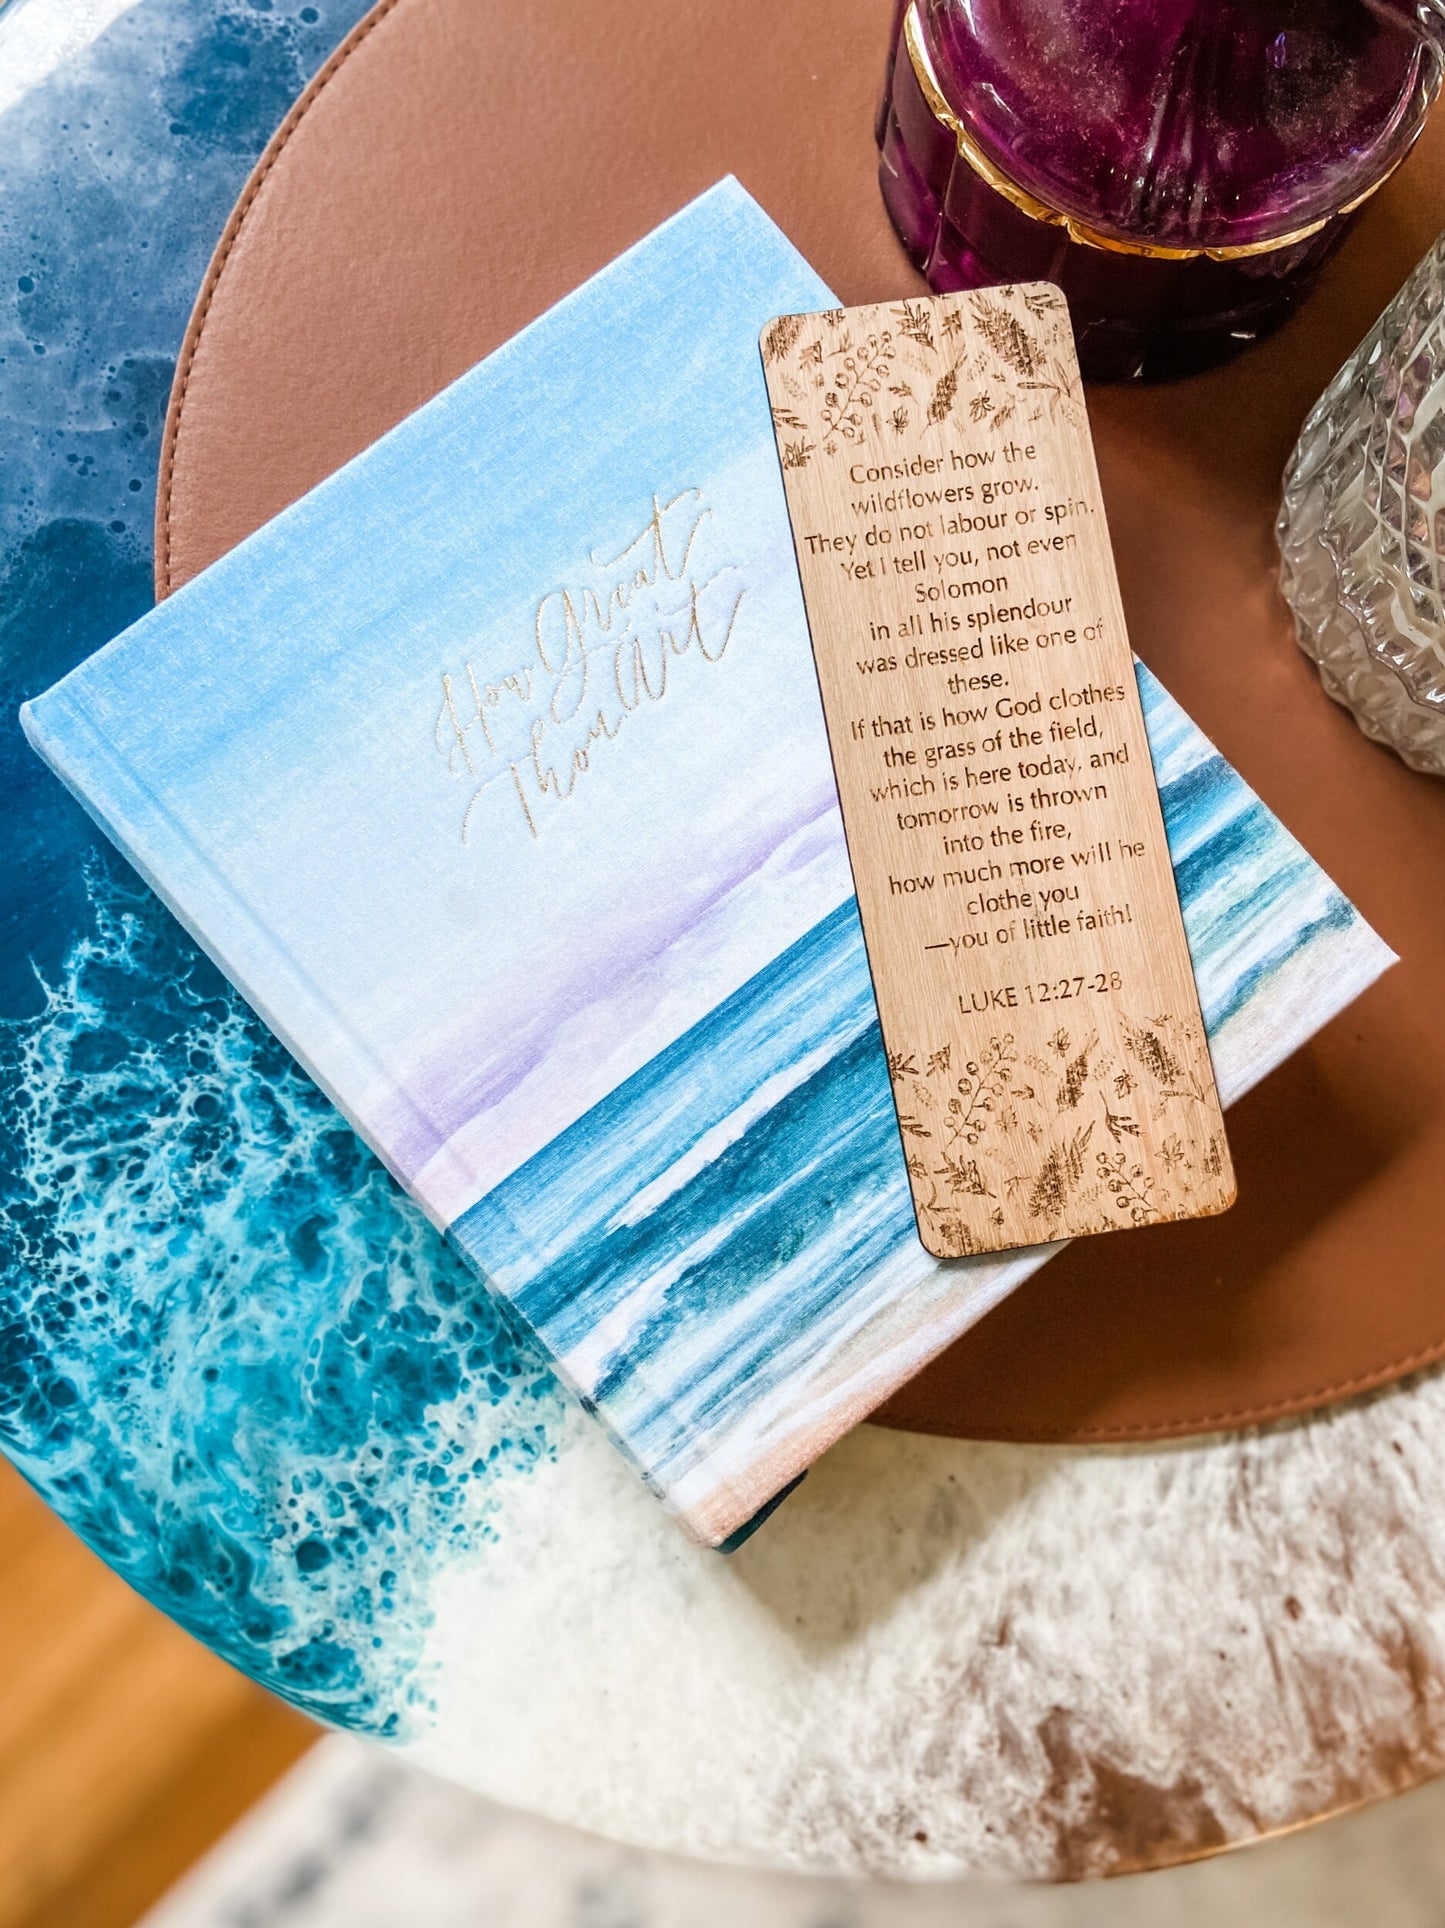 How Great
Thou Art
Consider how the
wildflowers grow.
They do not labour or spin.
Yet I tell you, not even
Solomon
in all his splendour
was dressed like one of
these.
If that is how God clothes
the grass of the field,
which is here today, and
tomorrow is thrown
into the fire,
how much more will he
clothe you
—you of little faith!
LUKE 12:27-28